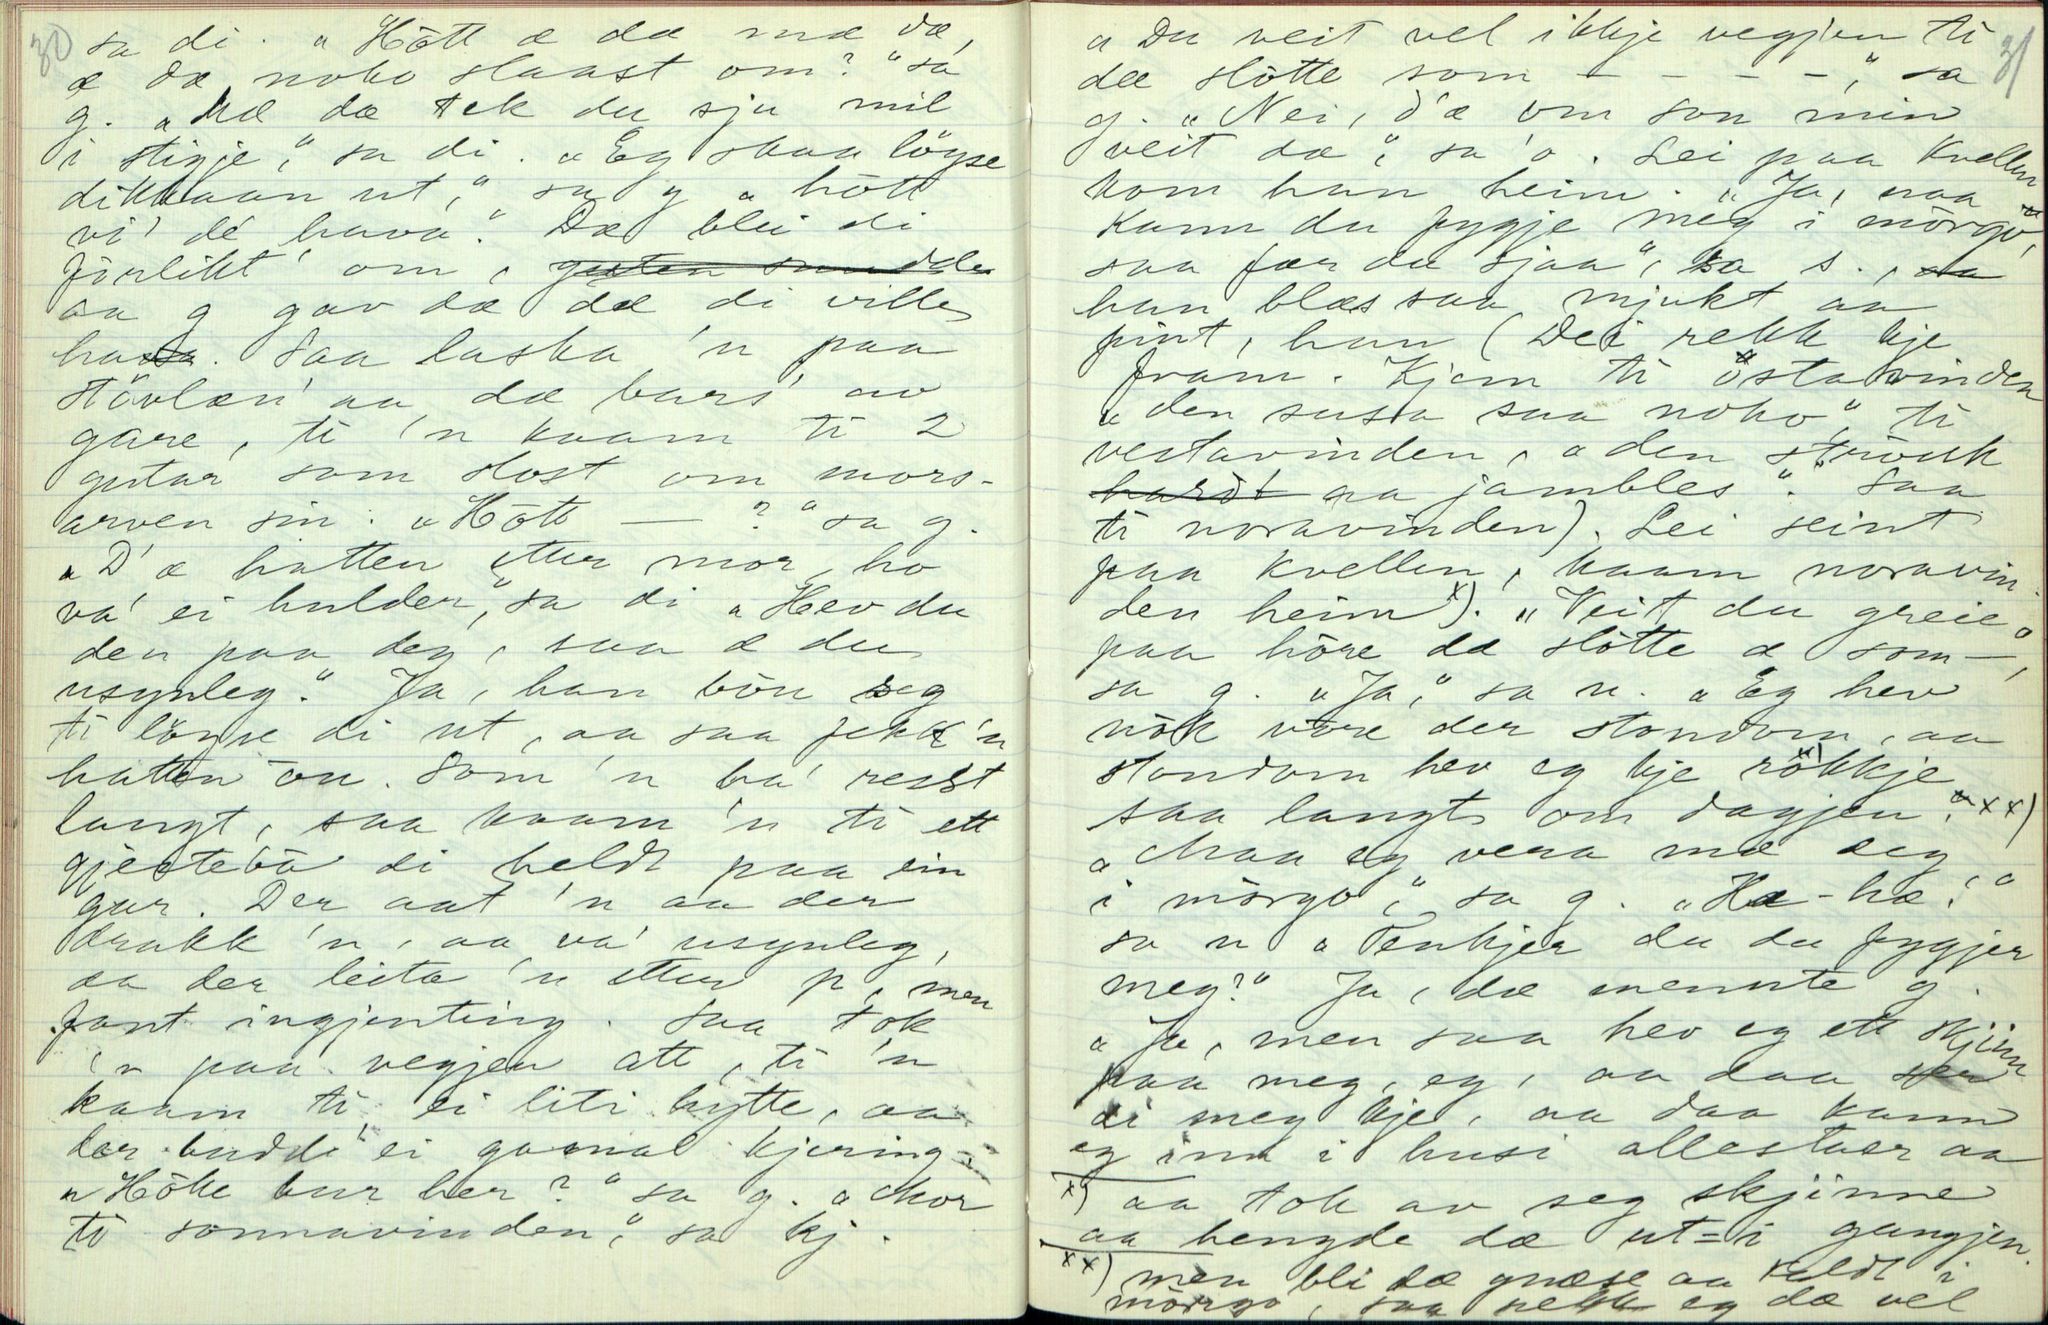 30
sa di. "Hött æ dæ mæ dæ,
æ dæ noko slaast om?" sa
g. "Mæ dæ tek du sju mil
i stigje," sa di. "Eg skaa löyse
dikkaan ut," sa g "hött
vi' dé hava." Dæ blei di
förlikt' om, guten smudde
aa g gav dæ dæ di ville
ha. Saa laska 'n paa
stövlæn' aa dæ bars' av
gare, ti 'n kaam ti 2
gutar som slost om mors-
arven sin. "Hött — ?" sa g.
"D'æ hatten etter mor, ho
va' ei hulder," sa di "Hev du
den paa deg, saa æ du
usynleg." Ja, han bön seg
ti löyse di ut, aa saa fekk 'n
hatten ou. Som 'n ha' reist
langt, saa kaam 'n ti ett
gjestebö di heldt paa ein
gar. Der aat 'n aa der
drakk 'n, aa va' usynleg,
aa der leita 'n etter p, men
fant ingjenting. Saa tok
'n paa vegjen att, ti 'n
kaam ti ei liti hytte, aa
der budde ei gamal kjering.
"Höke bur her?" sa g. "Mor
ti sonnavinden," sa kj.
31
"Du veit vel ikkje vegjen ti
dæ slötte som — — — —," sa
g. "Nei, d'æ om son min
veit dæ," sa 'o. Lei paa kvellen
kom han heim. "Ja, naa
kann du fygje meg i mörgo,
saa fær du sjaa", sa s.,
han blæs saa mjukt aa
fint, han (Dei rekk kje
fram. Kjem ti östavinden
"den susa saa noko", ti
vestavinden, "den strouk
hardt aa jambles". Saa
ti noravinden). Lei seint
paa kvellen, kaam noravin-
den heim x). "Veit du greie
paa höre dæ slötte æ som —,"
sa g. "Ja," sa n. "Eg hev
nök vöre der stondom, aa
stondom hev eg kje rökkje
saa langt om dagjen." xx)
"Maa eg vera mæ deg
i mörgo," sa g. "Hæ-hæ!"
sa n "Tenkjer du du fygjer
meg?" Ja, dæ mennte g.
"Ja, men saa hev eg ett skjinn
paa meg, eg, aa daa ser
di meg kje, aa daa kann
eg inn i husi allestaer aa
x) aa tok av seg skjinne
aa hengde dæ ut=i gangjen.
xx) men bli dæ gnæse aa kaldt i
mörgo, saa rekk eg dæ vel